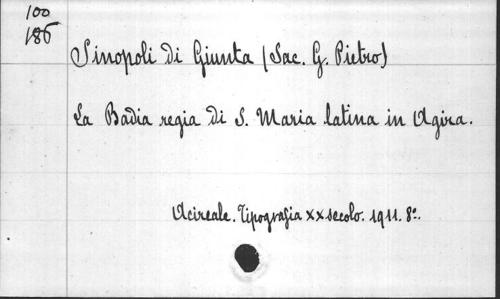 100
186
Sinopoli di Giunta (Sac. G. Pietro)
La Badia regia di S. Maria latina in Agira.
Acireale. Tipografia XX secolo. 1911. 8°.